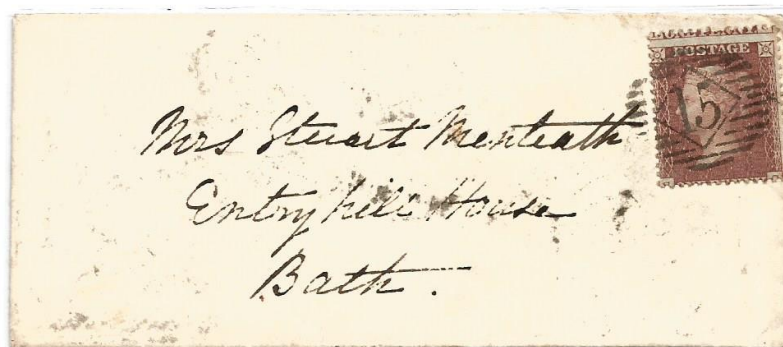 POSTAGE
15
Mrs Steuart Menteath
Entryhill House
Bath.